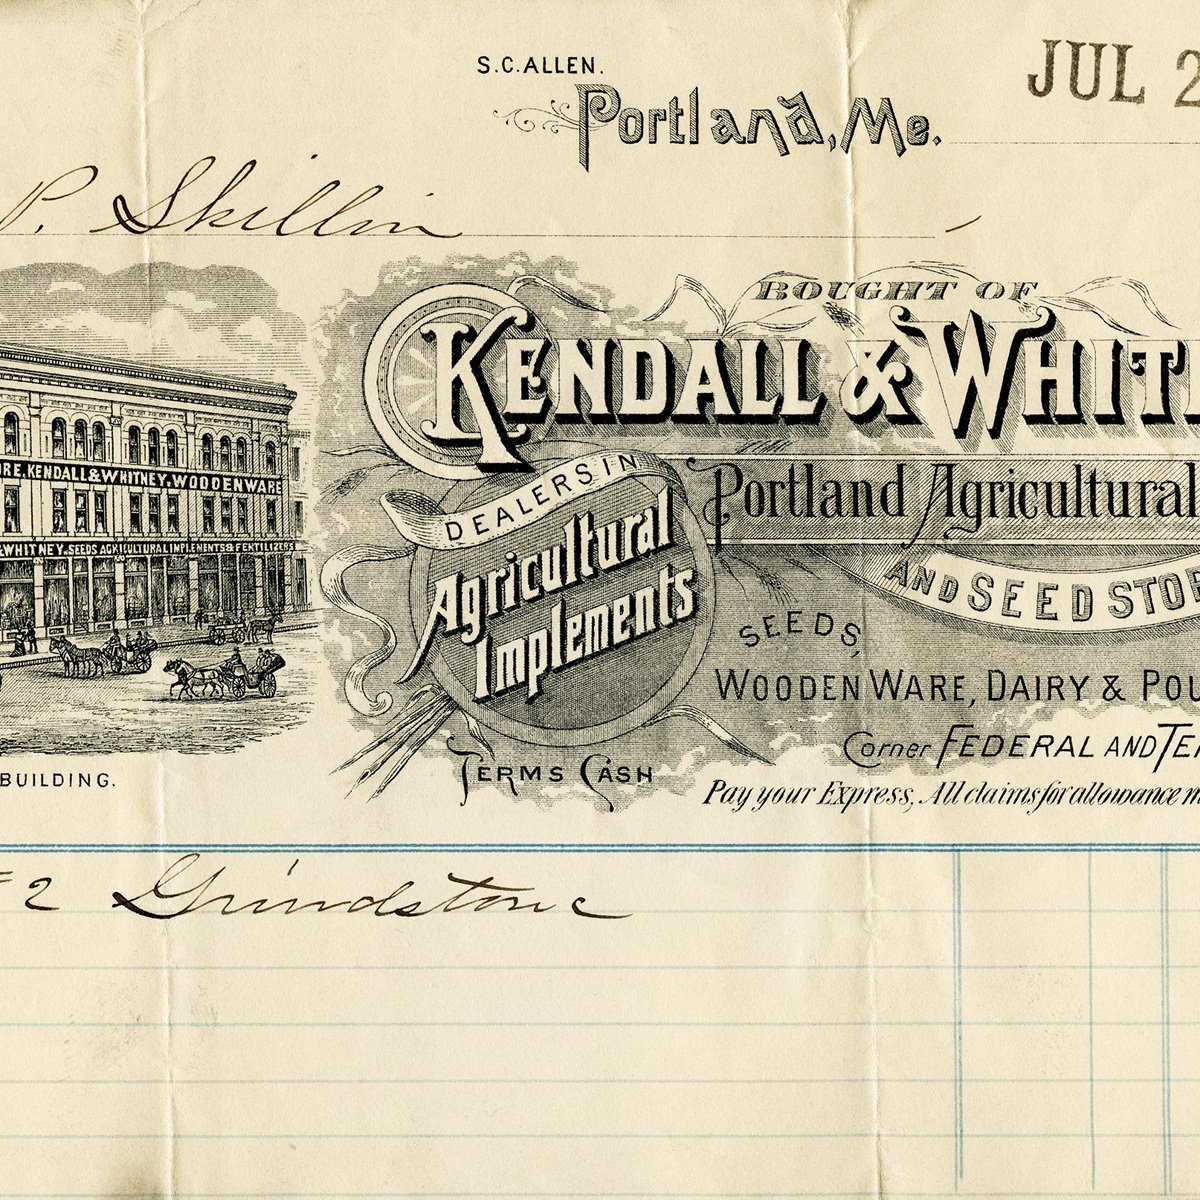 S.C.ALLEN.
Portland, Me. JUL 2
P. Skillin
BOUGHT OF
KENDALL & WHIT
DEALERS IN
Agricultural
Implements
Portland Agricultural
AND SEED STO
SEEDS,
WOODEN WARE, DAIRY & POU
Corner FEDERAL AND TE
TERMS CASH
Pay your Express, All claims for allowance m
RE. KENDALL & WHITNEY. WOODENWARE
& WHITNEY. SEEDS AGRICULTURAL IMPLEMENTS & FERTILIZERS
BUILDING.
#2 Grindstone